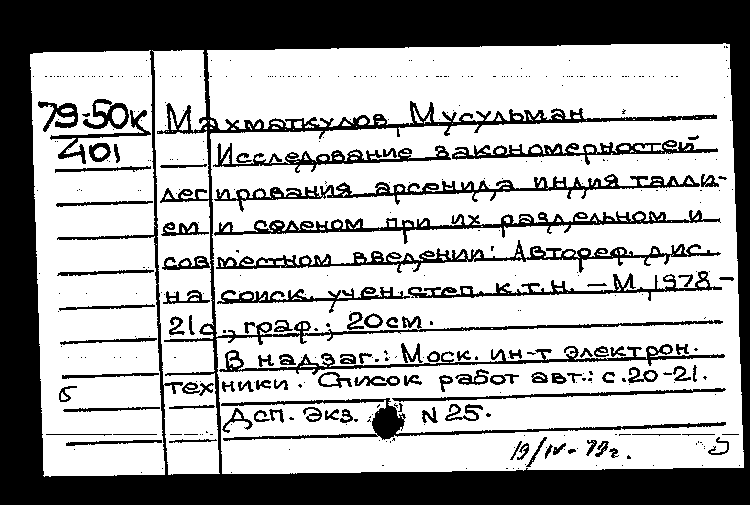 79-50к Махматкулов, Мусульман
401 Исследование закономерностей
легирования арсенида индия талли-
ем и селеном при их раздельном и
совместном введении: Автореф. дис.
на соиск. учен. степ. к.т.н. – М., 1978 –
21с., граф.; 20см.
В надзаг.: Моск. ин-т электрон.
техники. Список работ авт.: с.20-21.
Дсп. Экз. N 25.
19/IV-79г.